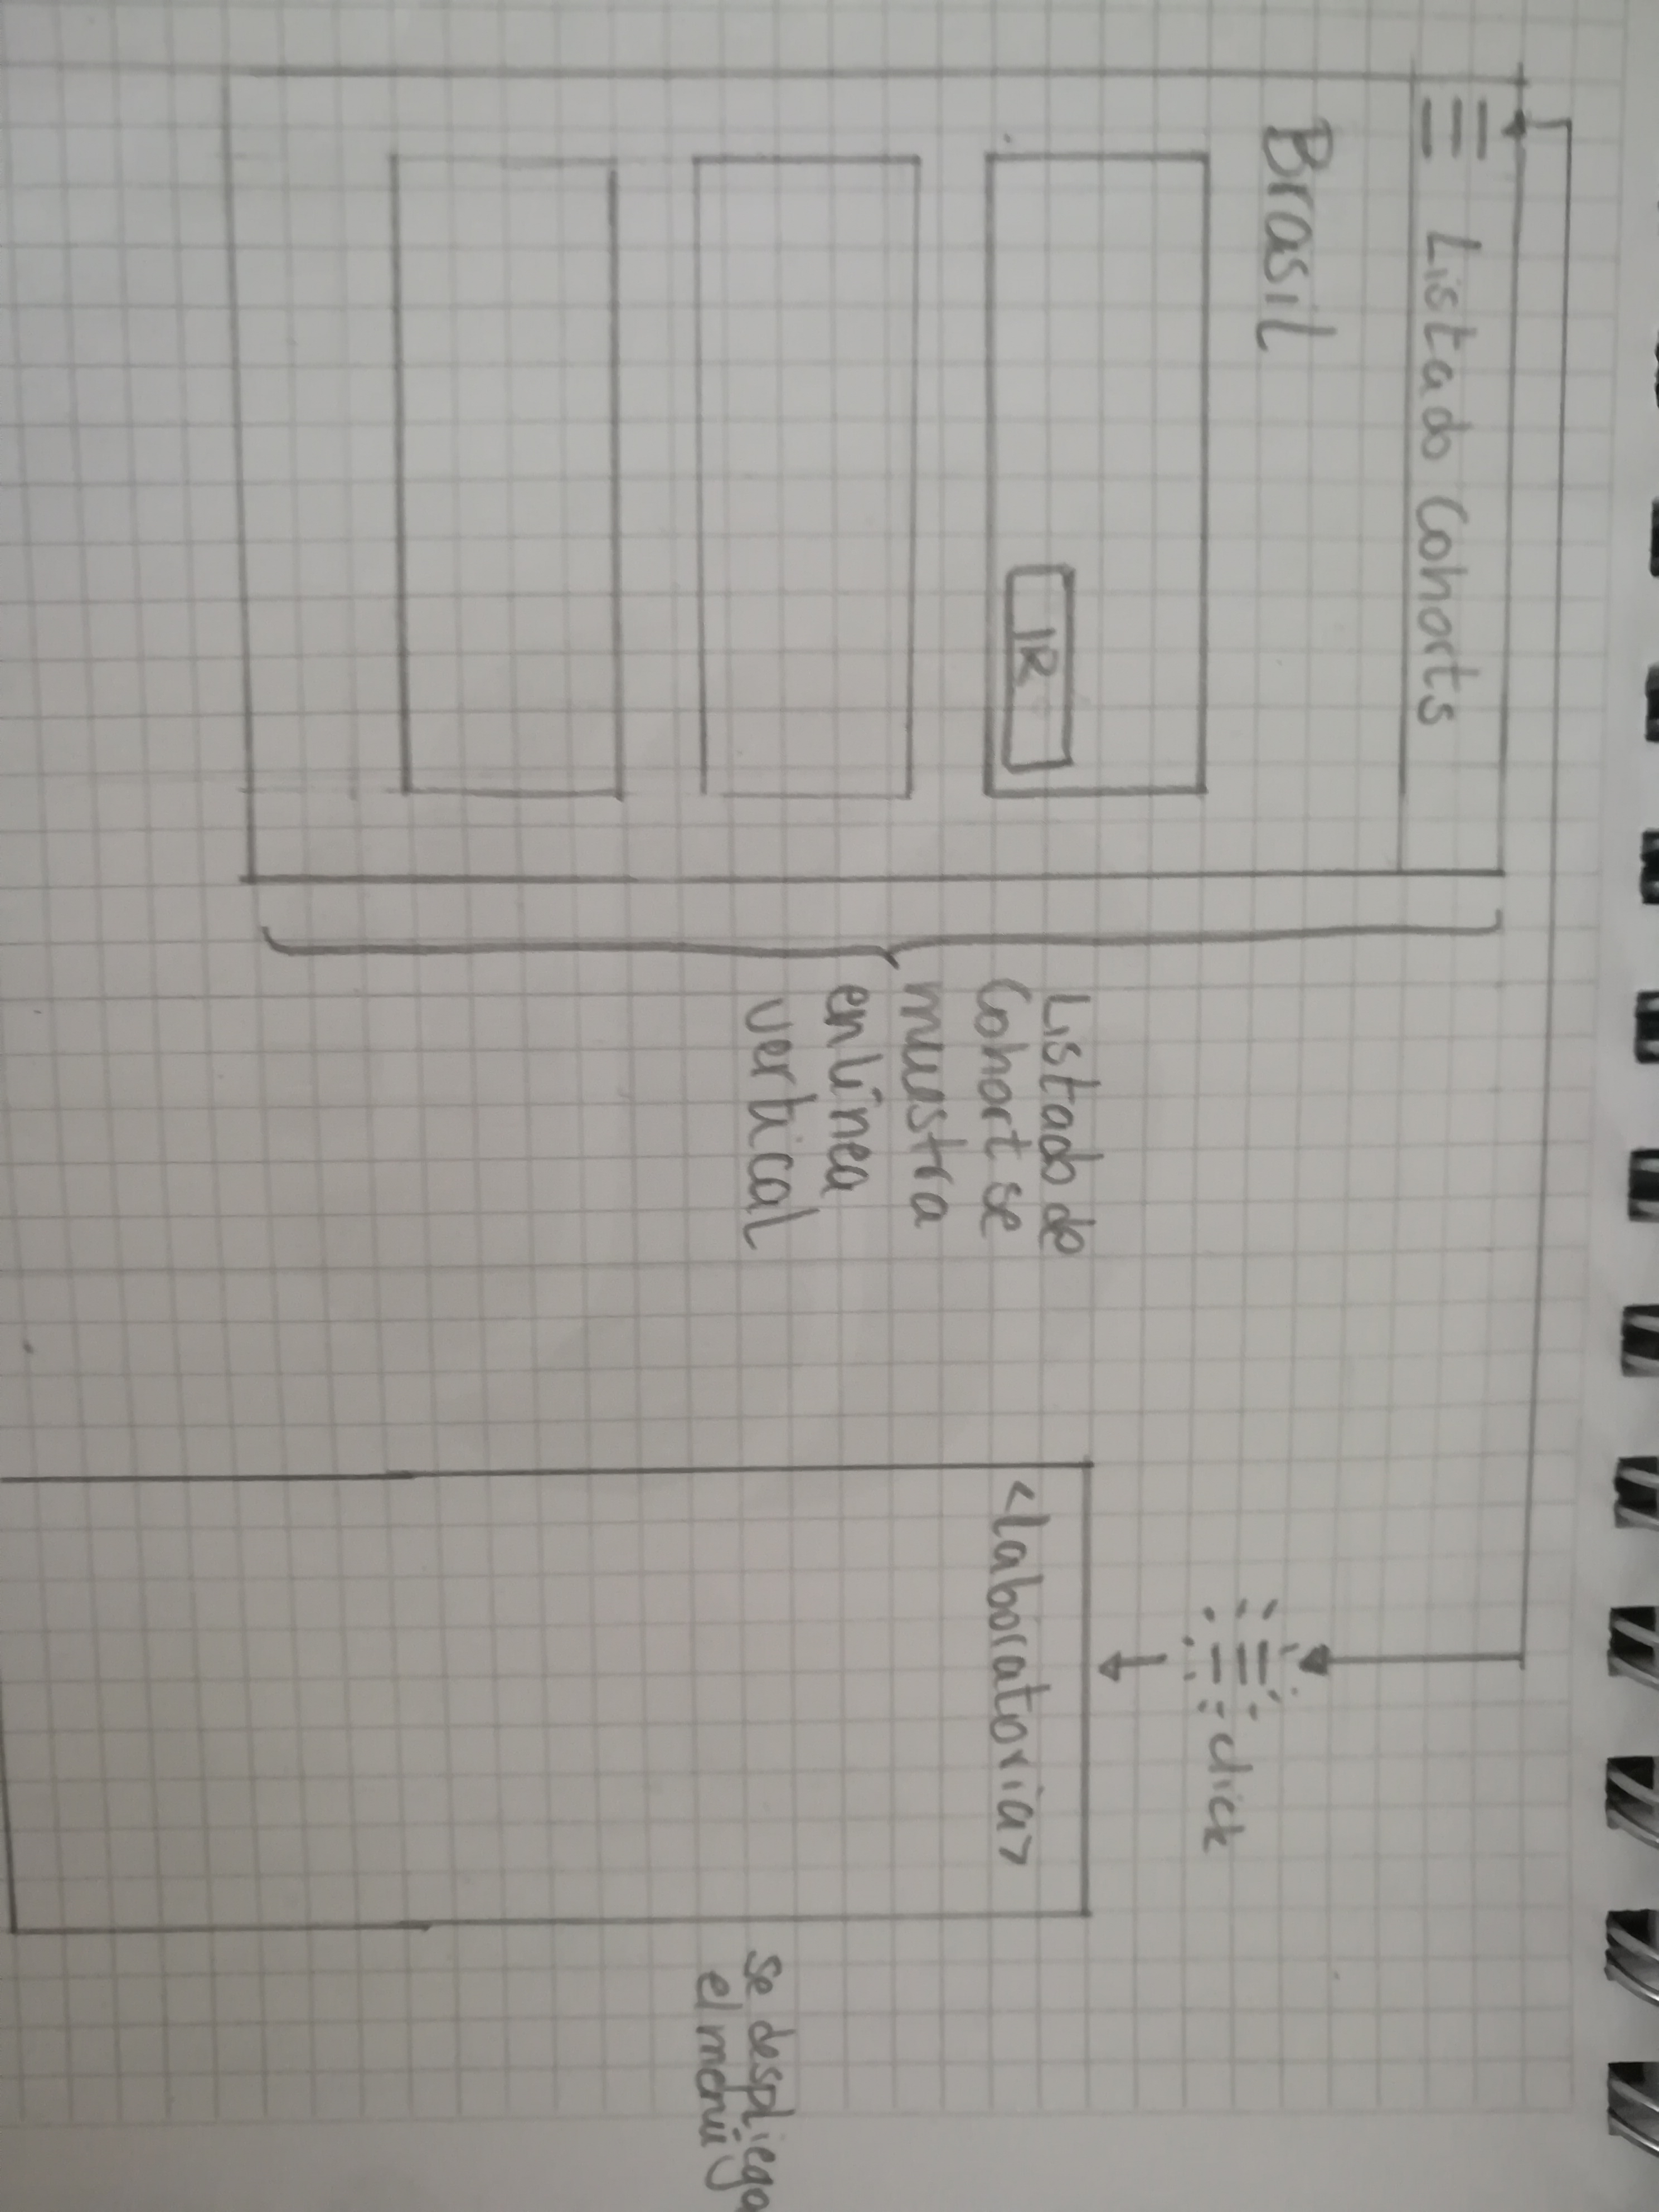 Listado Cohorts
Brasil
IR
Listado de
Cohort se
muestra
en línea
vertical
click
<laboratoria>
Se despliega
el menú